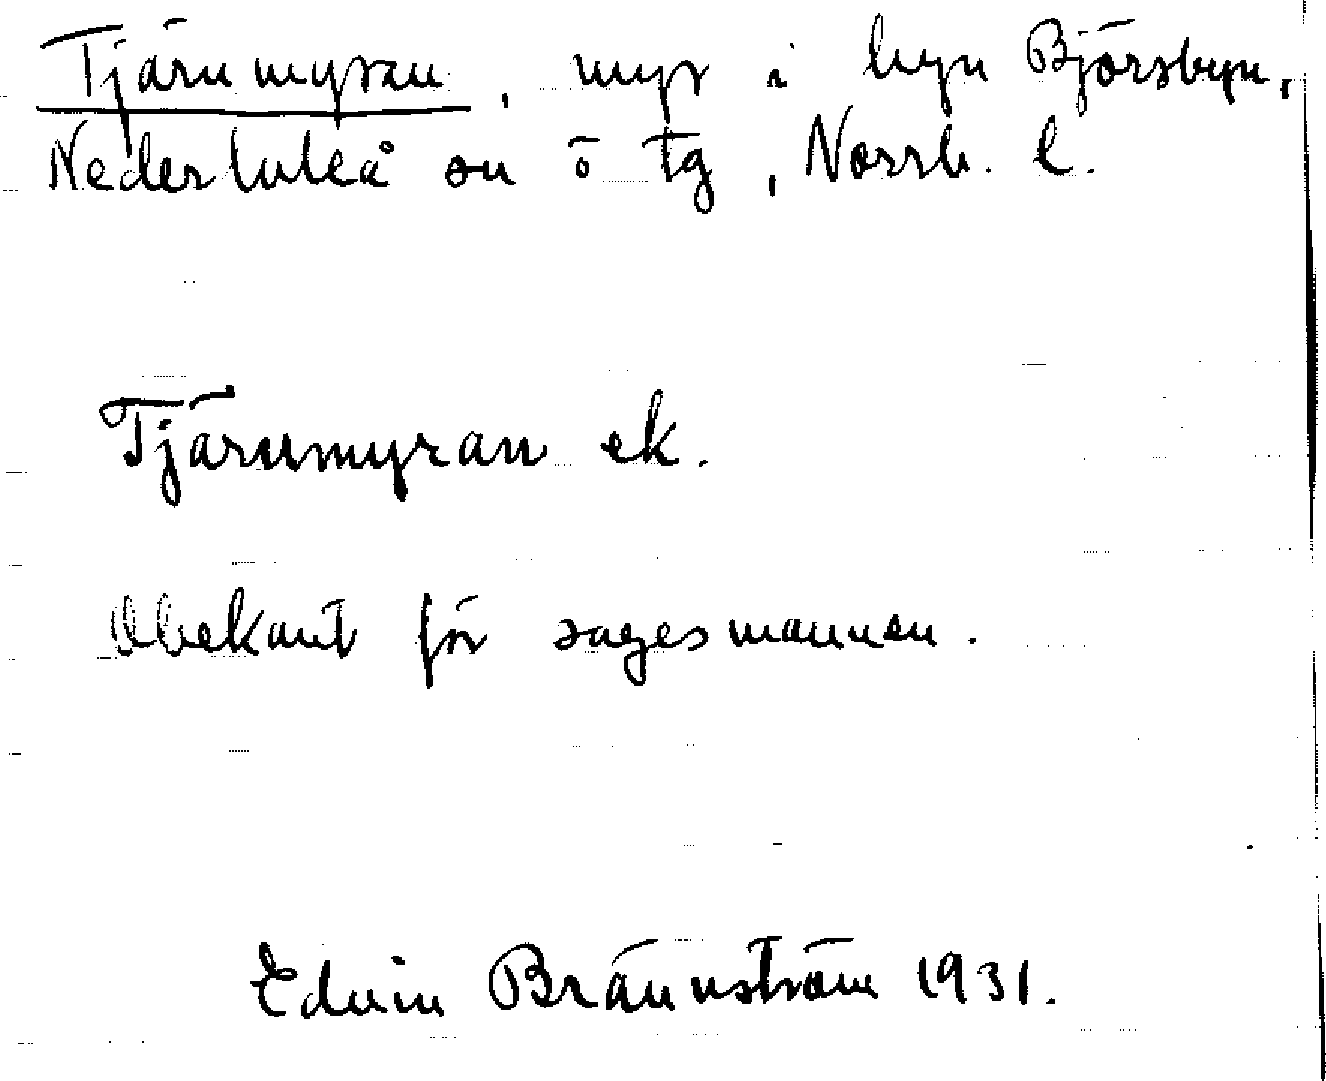 Tjärnmyran, myr i byn Björsbyn,
Nederluleå sn ö tg, Norrb. l.
Tjärnmyran ek.
Obekant för sagesmannen.
Edvin Brännström 1931.